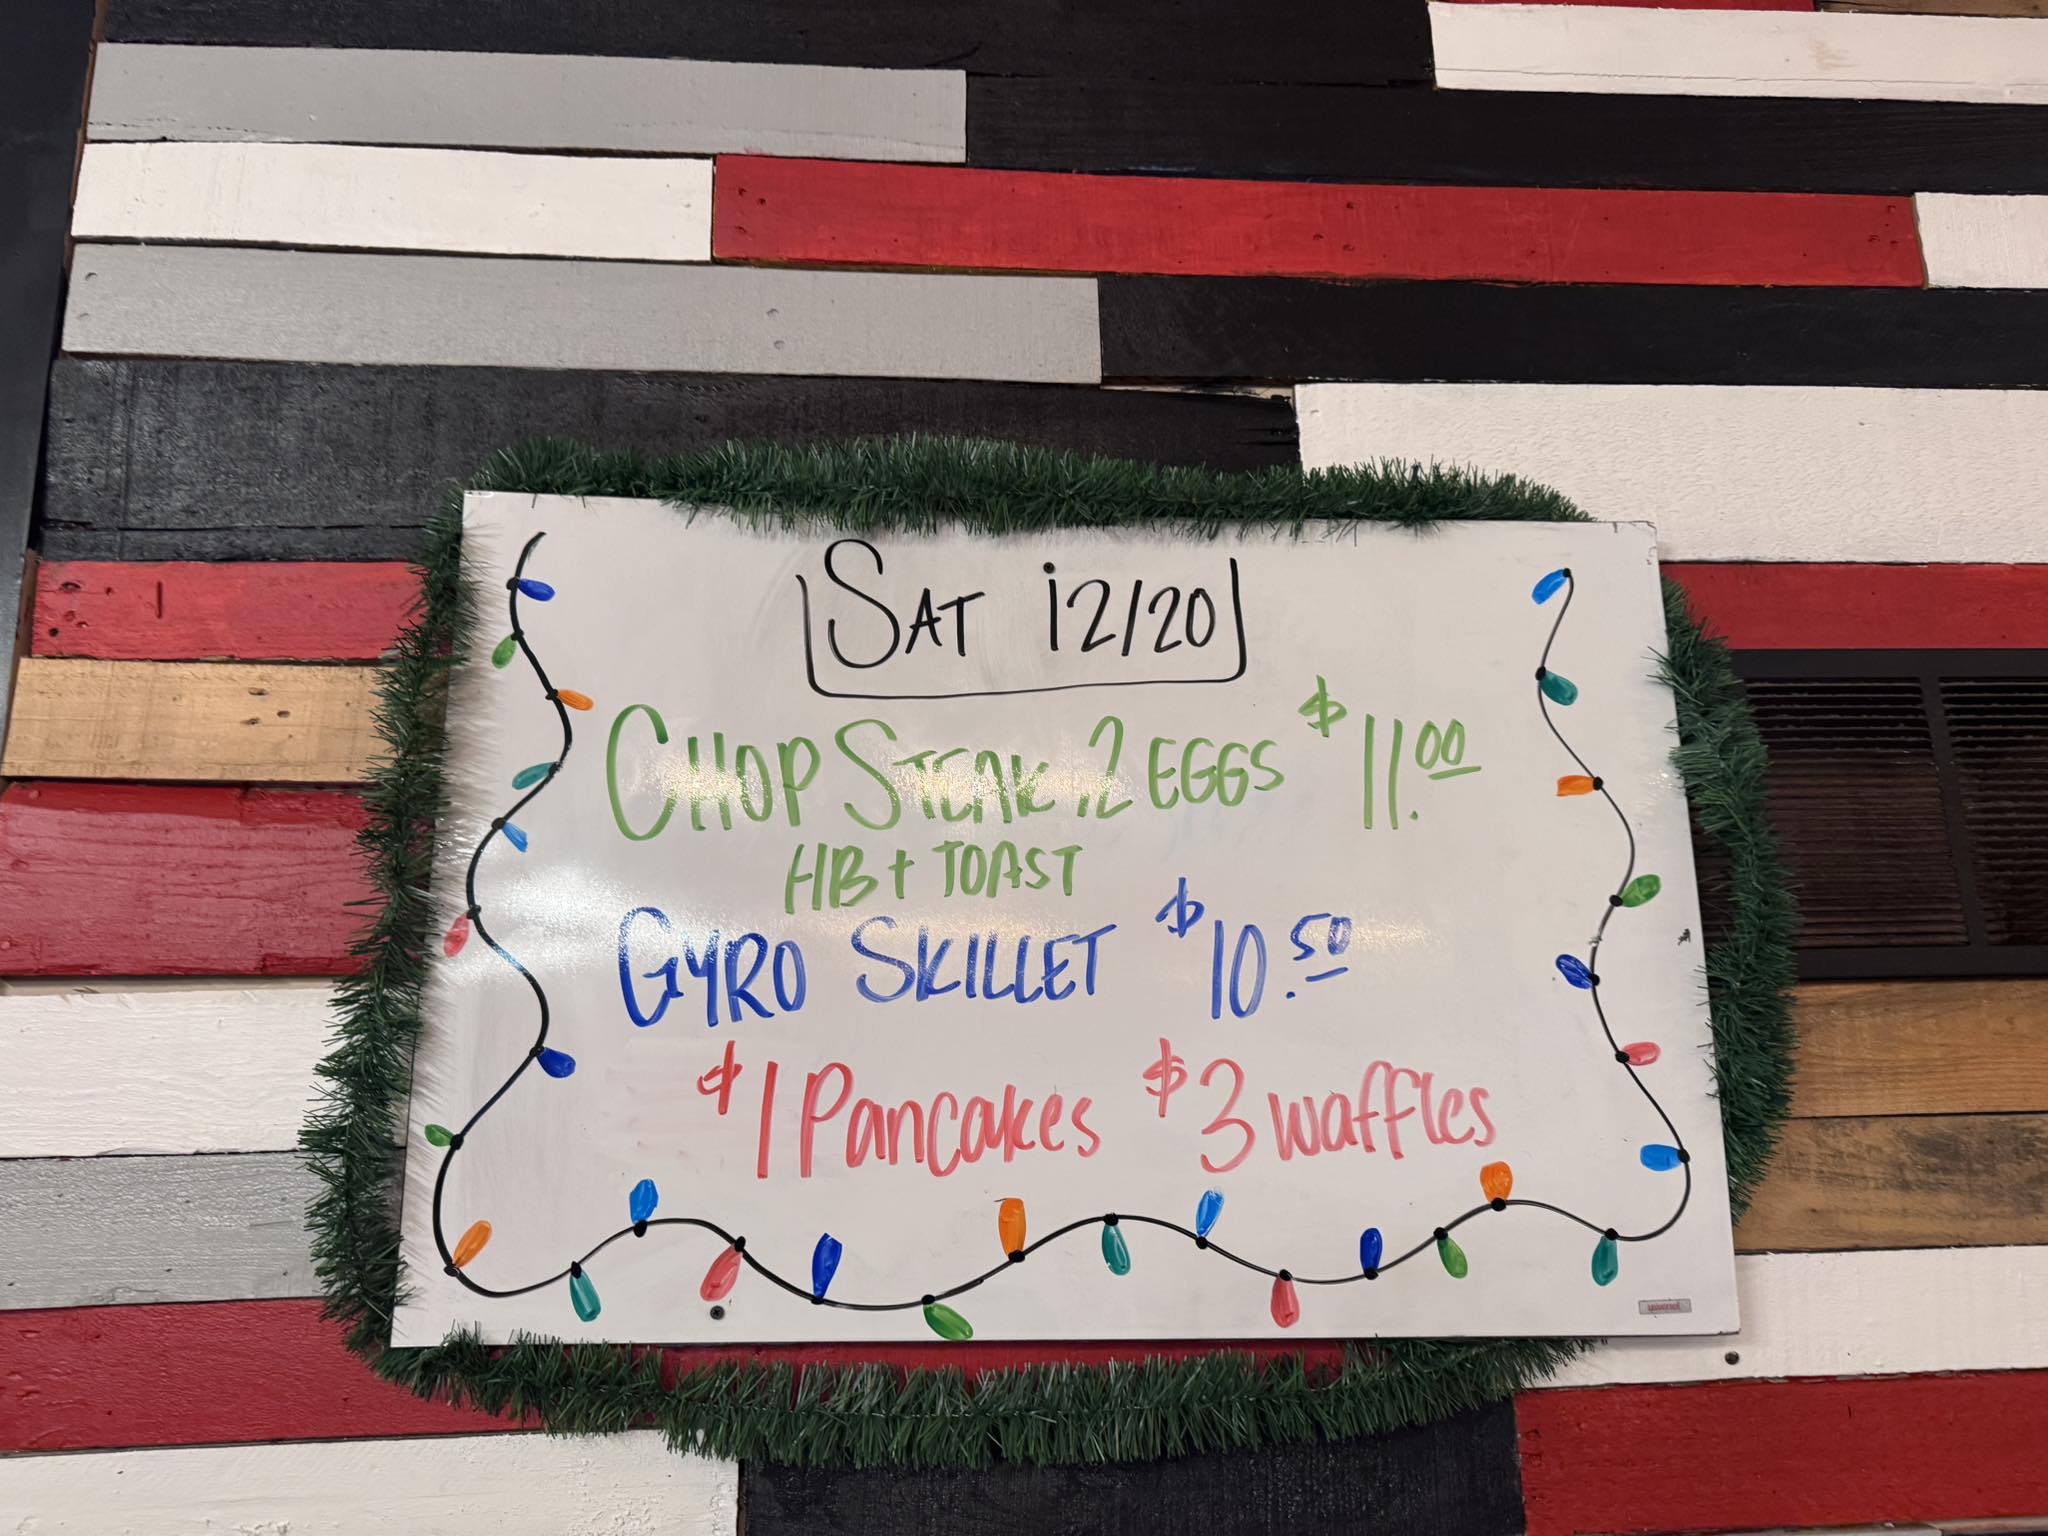 SAT 12/20
CHOP STEAK 2 EGGS $11.00
HB + TOAST
GYRO SKILLET $10.50
$1 Pancakes $3 waffles